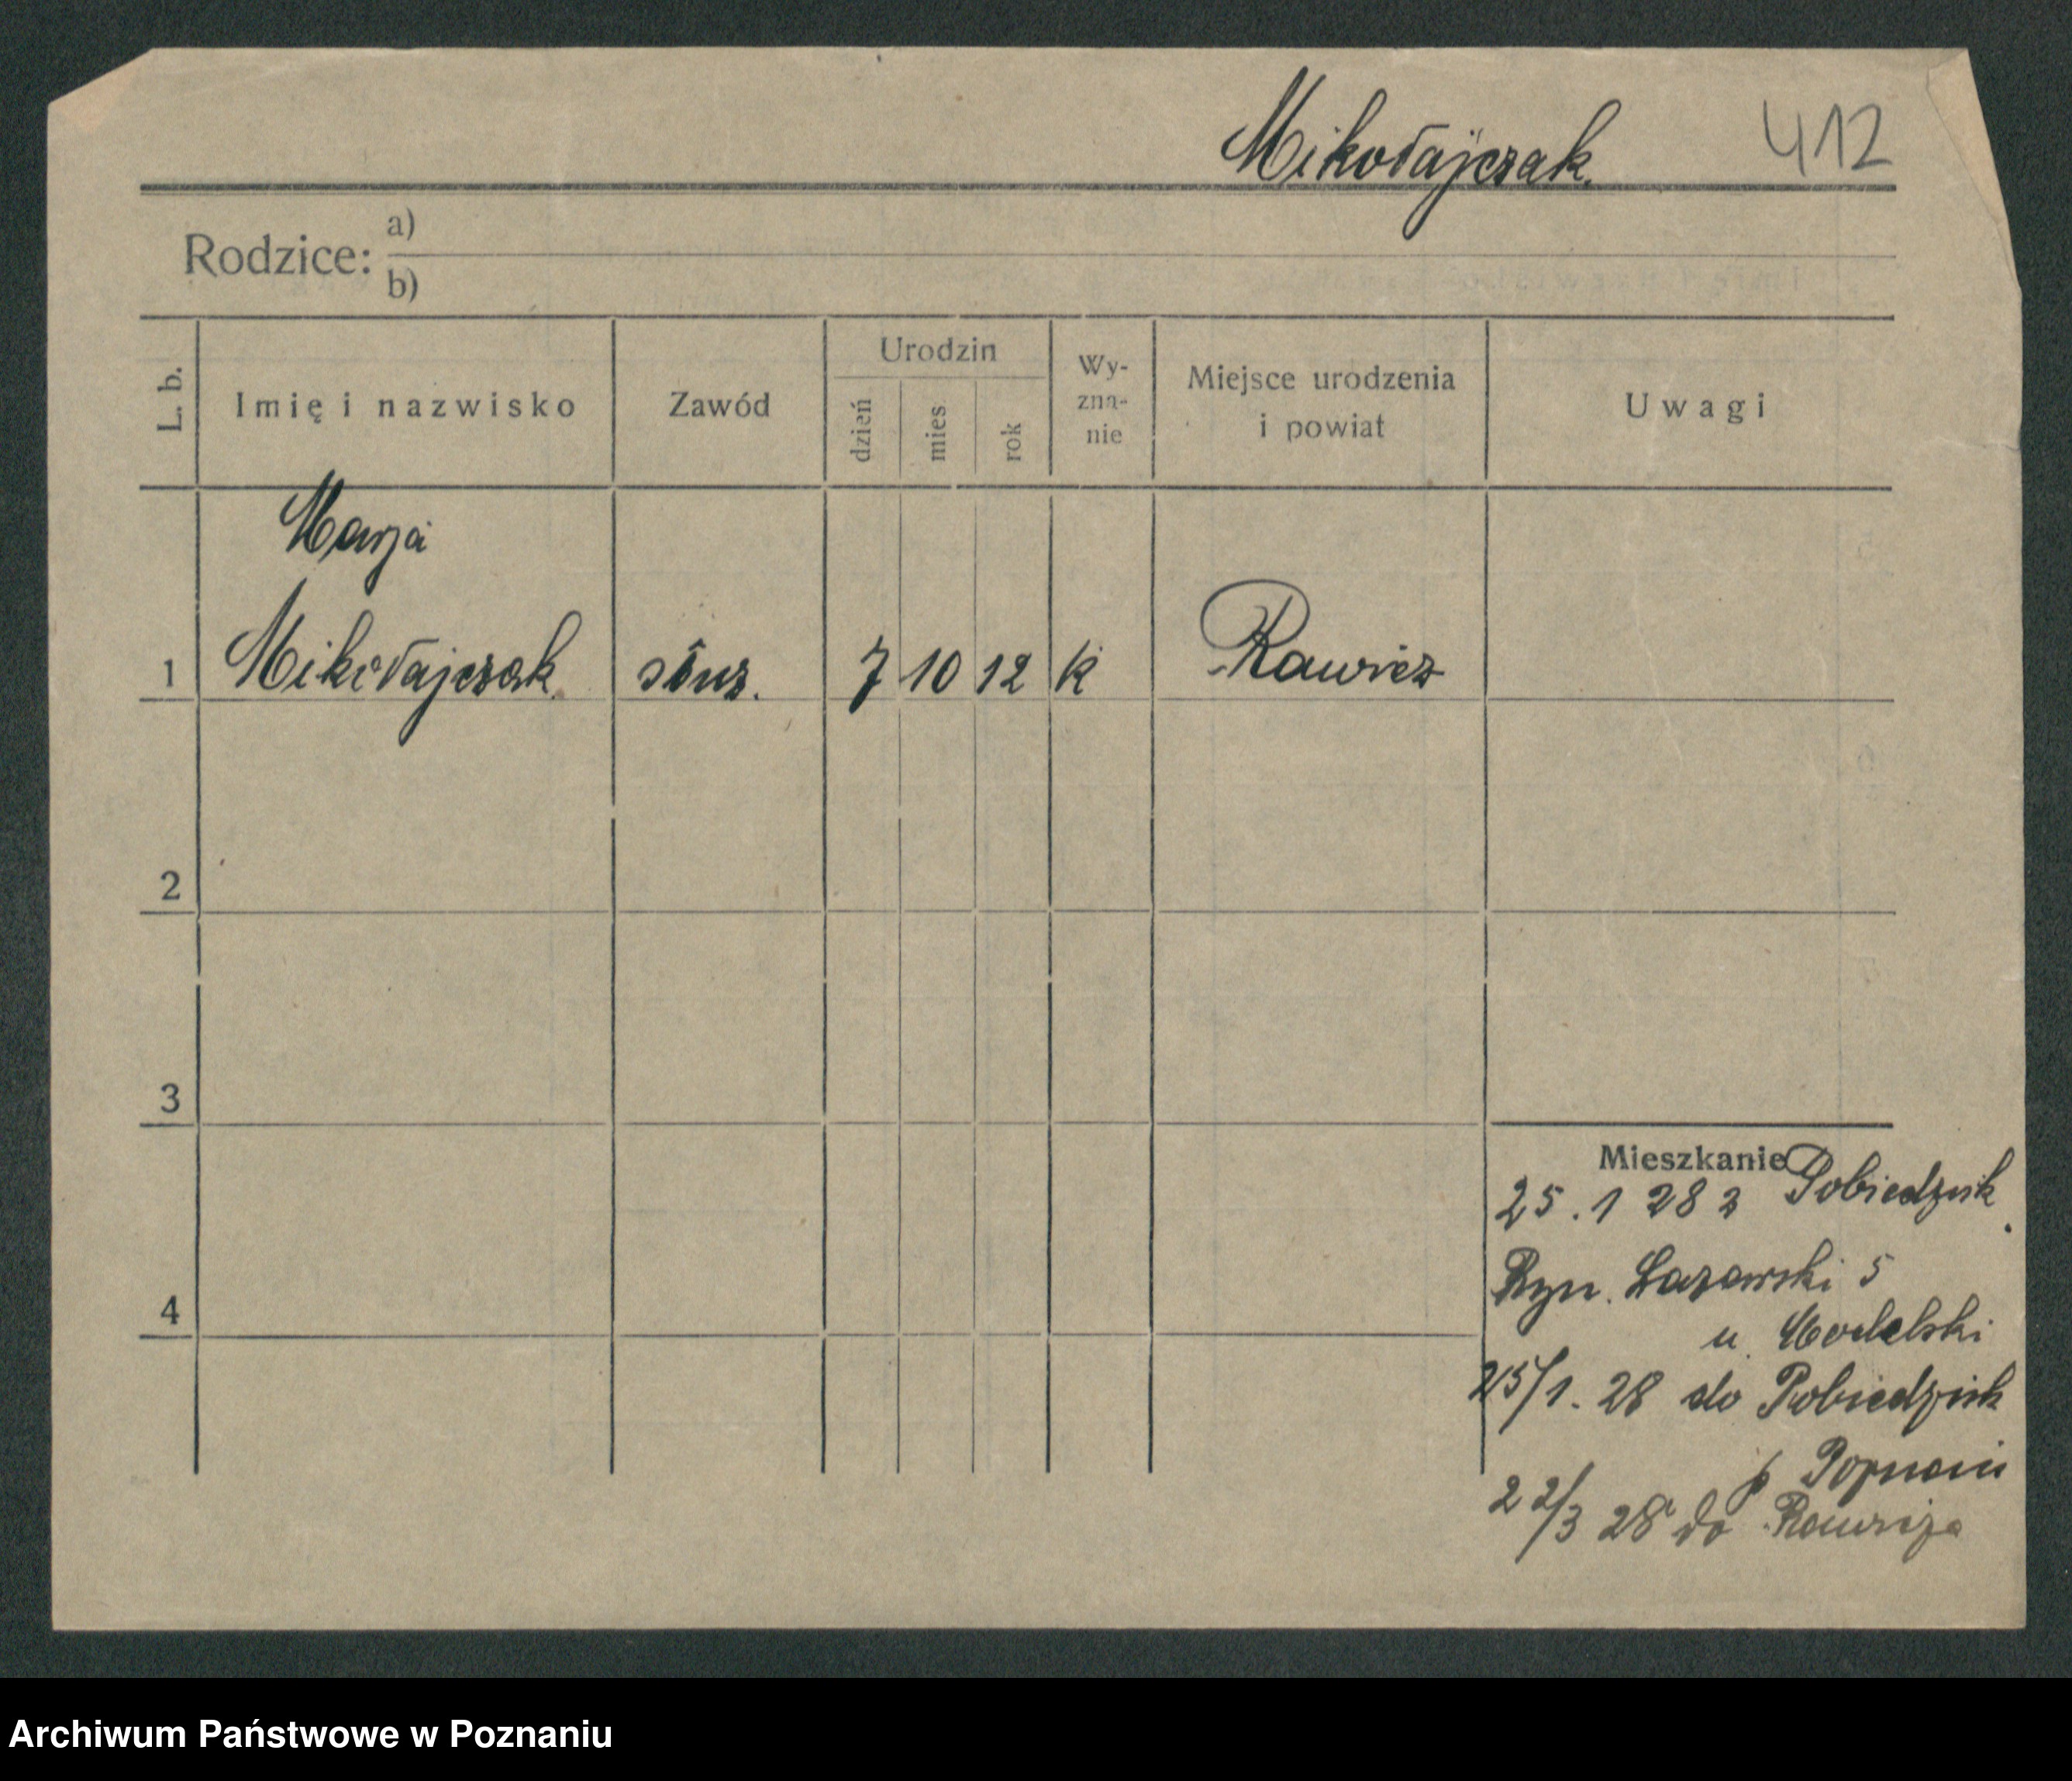 Mikołajczak. 412
Rodzice: a)
b)
L. b. Imię i nazwisko Zawód Urodzin dzień mies rok Wy-zna-nie Miejsce urodzenia i powiat Uwagi
Marja
1 Mikołajczak. służ. 7 10 12 k Rawicz
2
3
4
Mieszkanie
25. 1 28 z Pobiedzisk
Ryn. Łazarski 5
u. Modelski
25/1. 28 do Pobiedzisk
p Poznań
22/3 28 do Rawicza
Archiwum Państwowe w Poznaniu